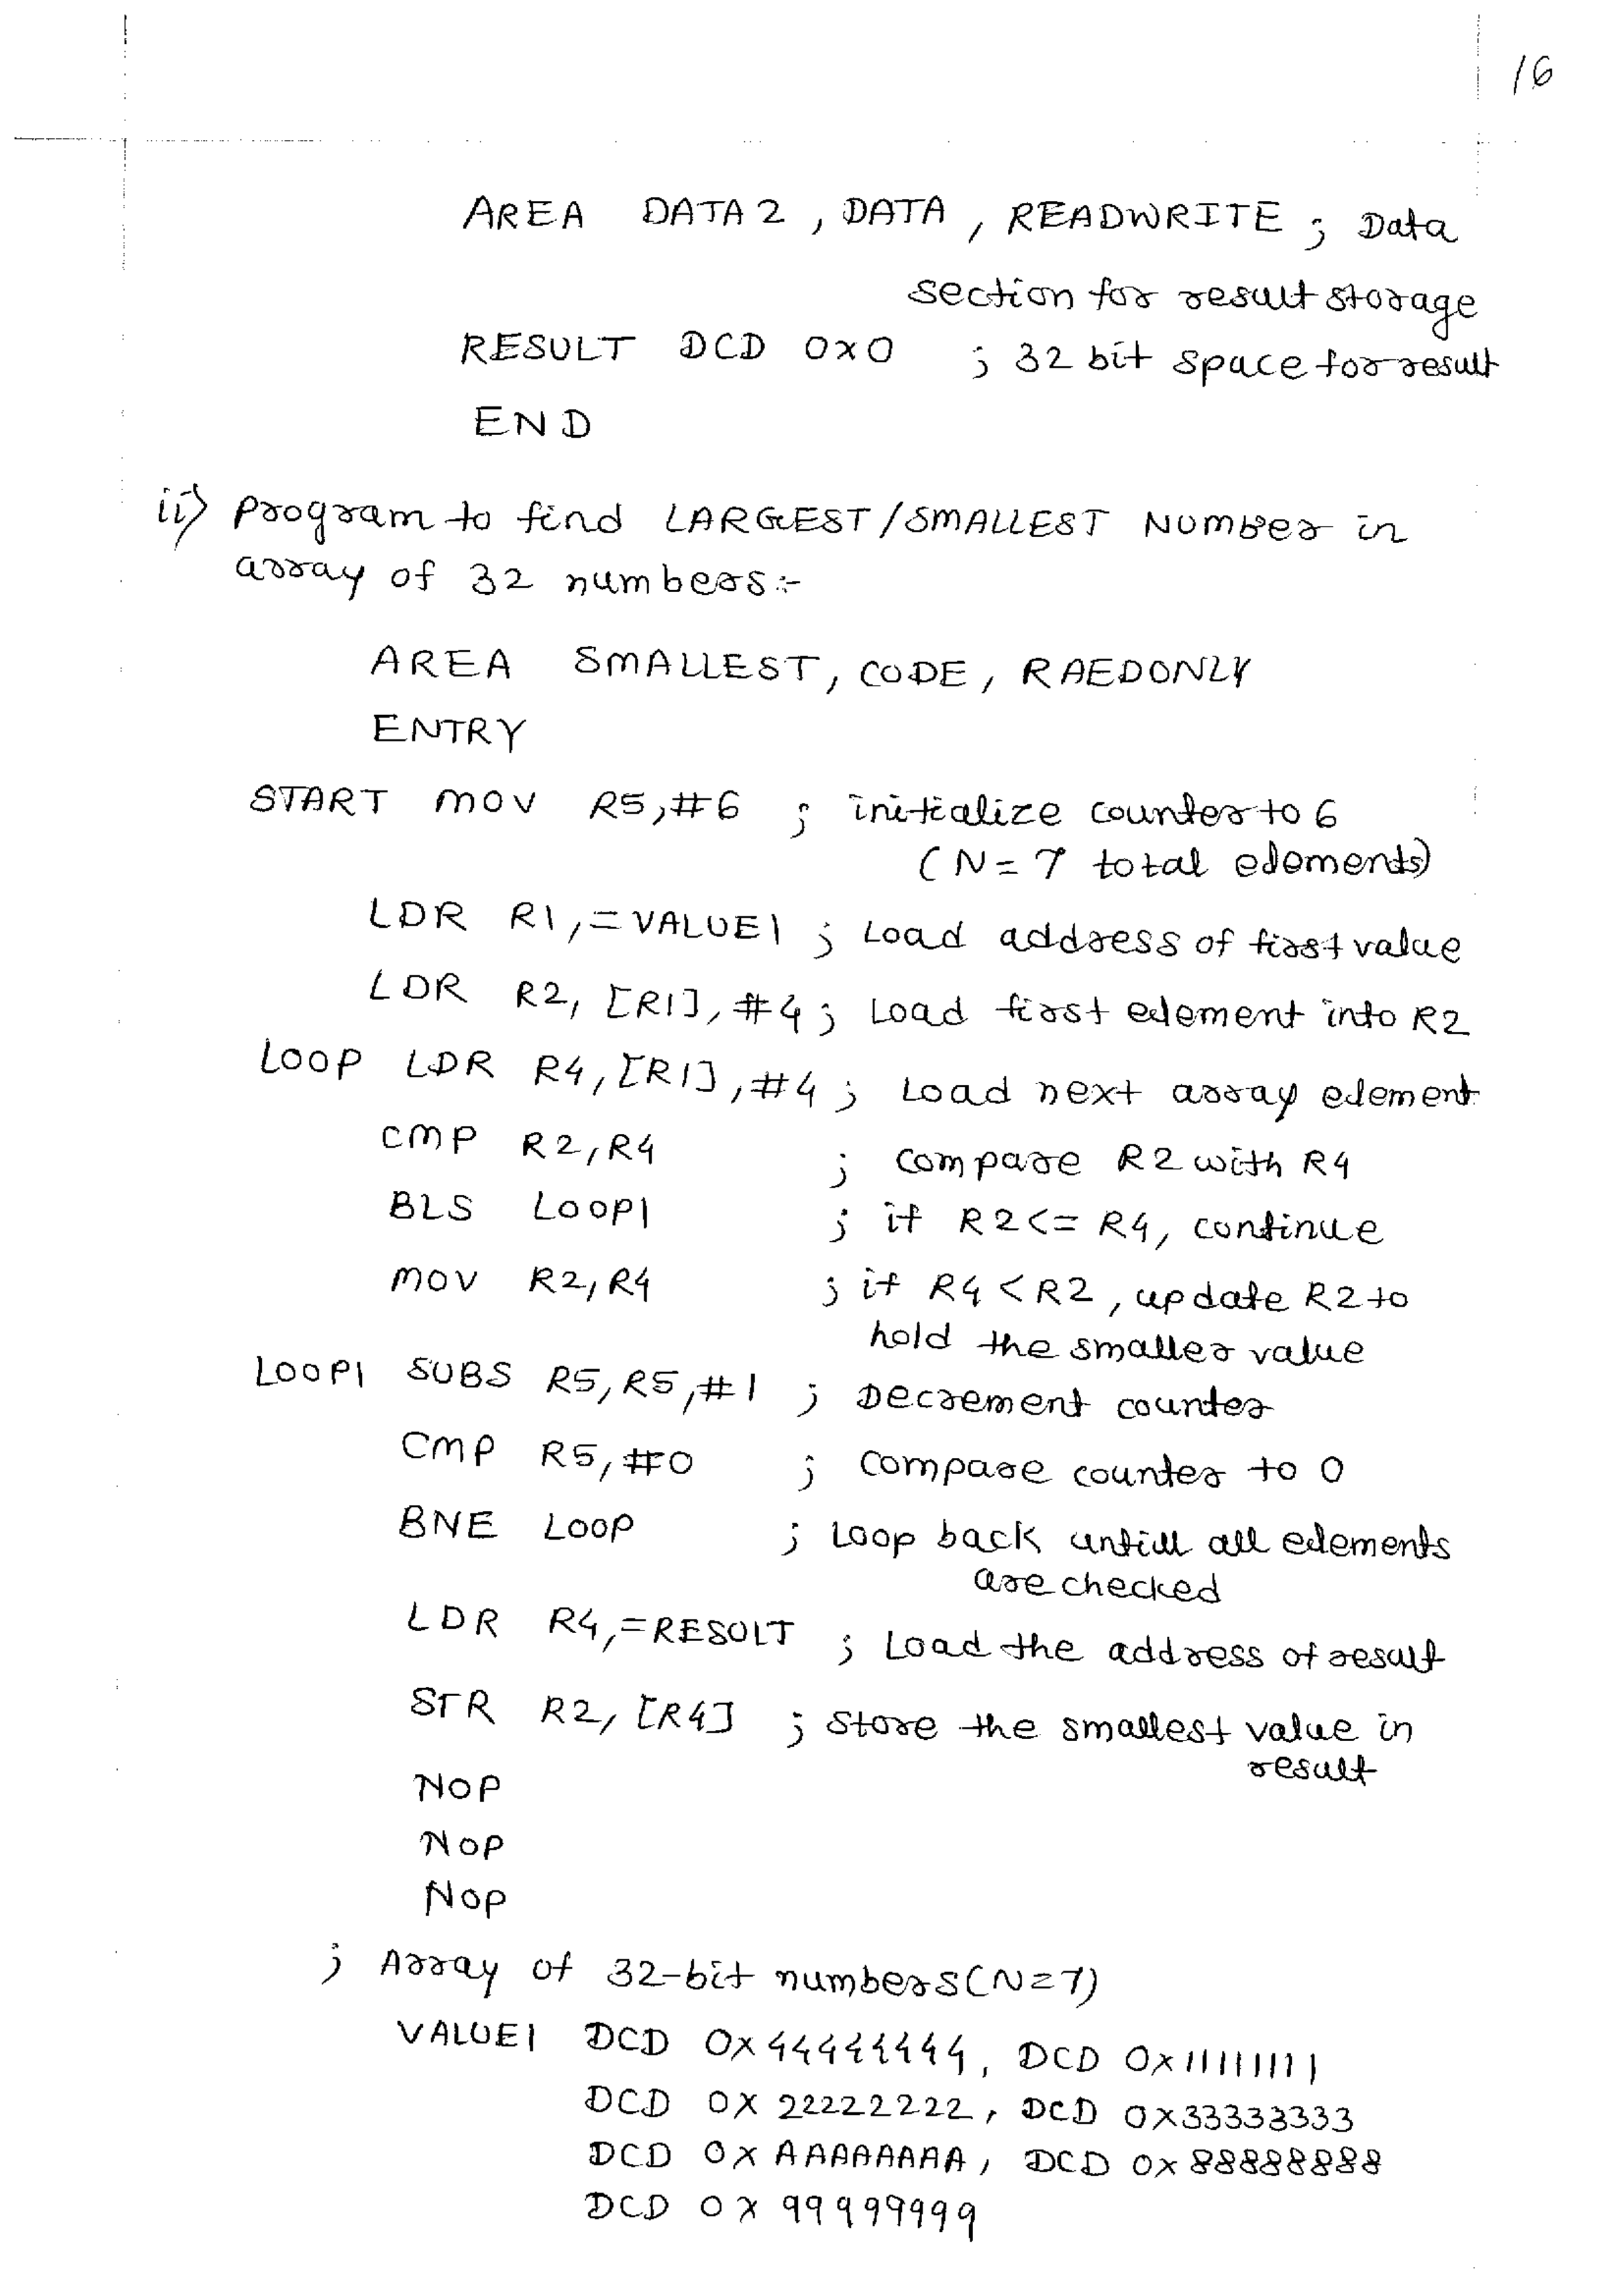 16
AREA DATA2, DATA, READWRITE ; Data
section for result storage
RESULT DCD 0x0 ; 32 bit space for result
END
ii) Program to find LARGEST/SMALLEST Number in
array of 32 numbers:-
AREA SMALLEST, CODE, RAEDONLY
ENTRY
START MOV R5,#6 ; initialize counter to 6
(N=7 total elements)
LDR R1,=VALUE1 ; Load address of first value
LDR R2, [R1], #4 ; Load first element into R2
LOOP LDR R4, [R1], #4 ; Load next array element
CMP R2, R4 ; compare R2 with R4
BLS LOOP1 ; if R2<= R4, continue
MOV R2, R4 ; if R4 < R2, update R2 to
hold the smaller value
LOOP1 SUBS R5, R5, #1 ; Decrement counter
CMP R5, #0 ; compare counter to 0
BNE LOOP ; Loop back untill all elements
are checked
LDR R4,=RESULT ; Load the address of result
STR R2, [R4] ; Store the smallest value in
result
NOP
NOP
NOP
; Array of 32-bit numbers(N=7)
VALUE1 DCD 0x44444444, DCD 0x11111111
DCD 0x22222222, DCD 0x33333333
DCD 0xAAAAAAAA, DCD 0x88888888
DCD 0x99999999